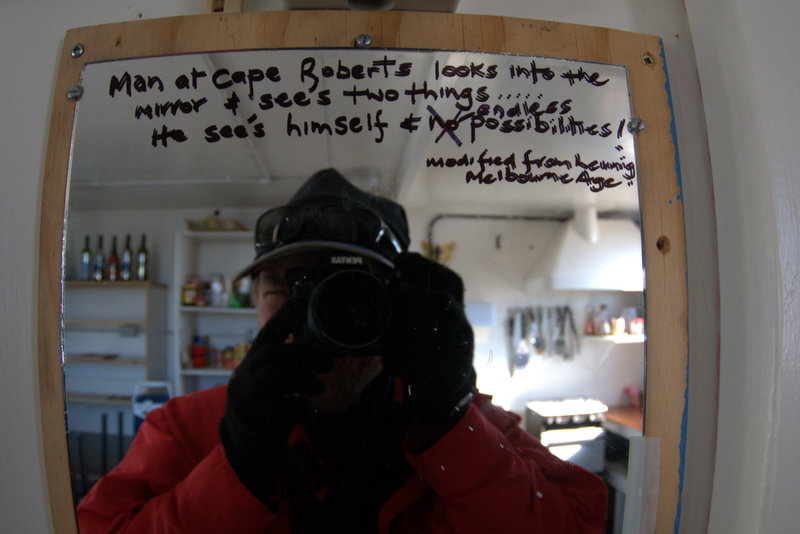 Man at Cape Roberts looks into the
mirror & see's two things ......
endless
He see's himself & no possibilities!
modified from Leunig
Melbourne Age
PENTAX